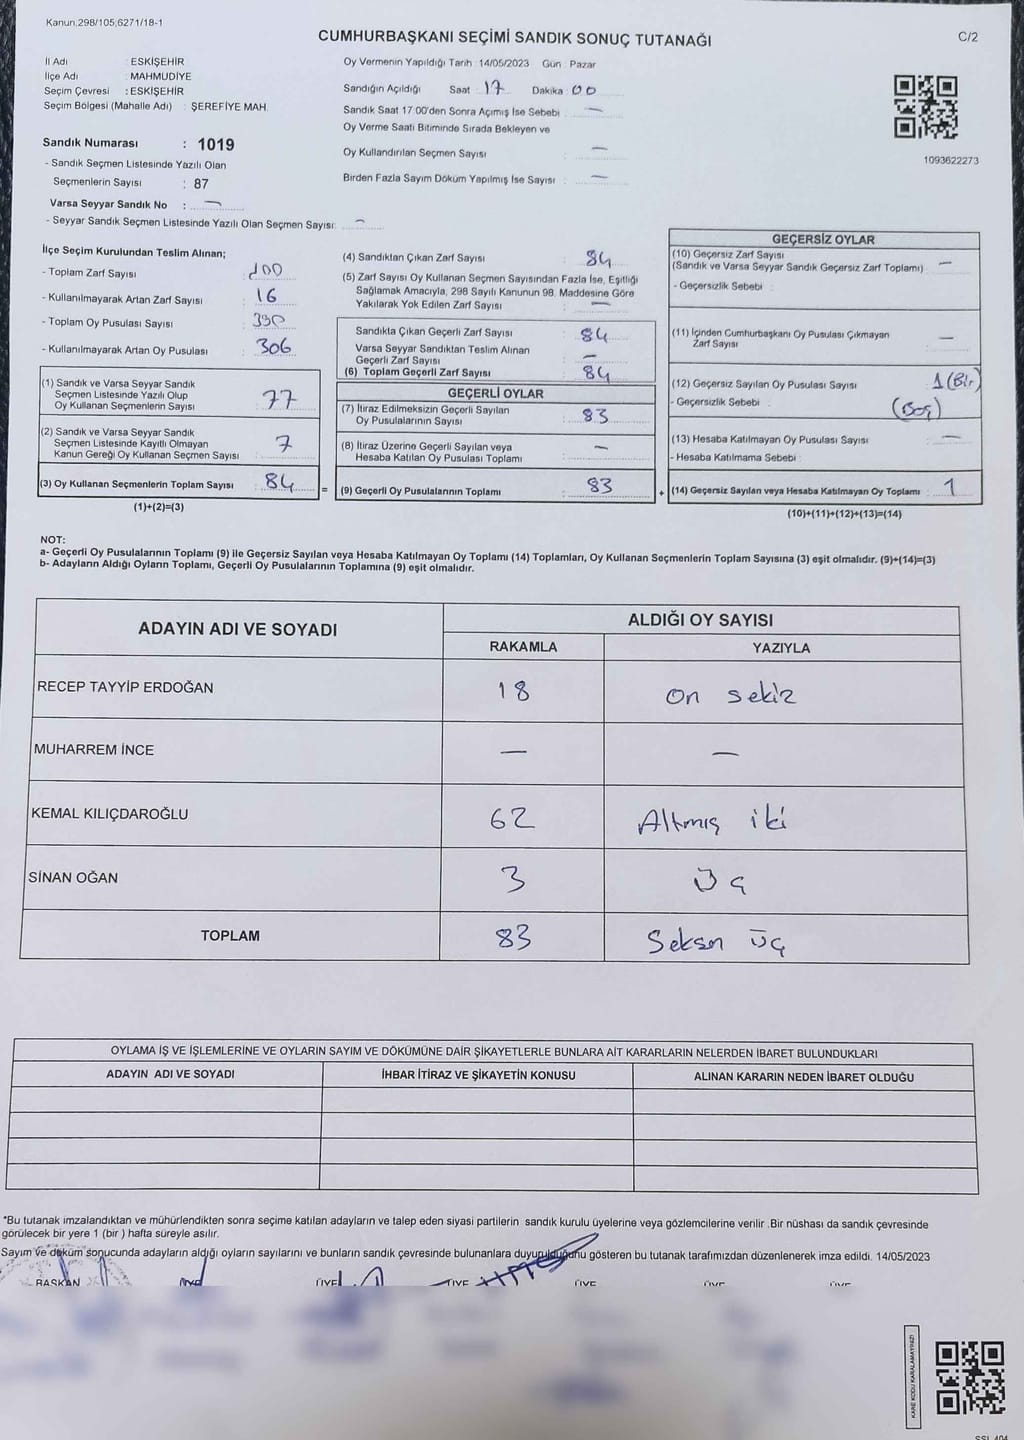 Kanun.298/105;6271/18-1
CUMHURBAŞKANI SEÇİMİ SANDIK SONUÇ TUTANAĞI
C/2
İl Adı : ESKİŞEHİR
İlçe Adı : MAHMUDİYE
Seçim Çevresi : ESKİŞEHİR
Seçim Bölgesi (Mahalle Adı) : ŞEREFİYE MAH.
Sandık Numarası : 1019
- Sandık Seçmen Listesinde Yazılı Olan
Seçmenlerin Sayısı : 87
Varsa Seyyar Sandık No : —
- Seyyar Sandık Seçmen Listesinde Yazılı Olan Seçmen Sayısı: —
Oy Vermenin Yapıldığı Tarih : 14/05/2023 Gün : Pazar
Sandığın Açıldığı Saat : 17 Dakika : 00
Sandık Saat 17:00'den Sonra Açımış İse Sebebi : —
Oy Verme Saati Bitiminde Sırada Bekleyen ve
Oy Kullandırılan Seçmen Sayısı : —
Birden Fazla Sayım Döküm Yapılmış İse Sayısı : —
1093622273
İlçe Seçim Kurulundan Teslim Alınan;
- Toplam Zarf Sayısı : 100
- Kullanılmayarak Artan Zarf Sayısı : 16
- Toplam Oy Pusulası Sayısı : 390
- Kullanılmayarak Artan Oy Pusulası : 306
(1) Sandık ve Varsa Seyyar Sandık
Seçmen Listesinde Yazılı Olup
Oy Kullanan Seçmenlerin Sayısı : 77
(2) Sandık ve Varsa Seyyar Sandık
Seçmen Listesinde Kayıtlı Olmayan
Kanun Gereği Oy Kullanan Seçmen Sayısı : 7
(3) Oy Kullanan Seçmenlerin Toplam Sayısı : 84 =
(1)+(2)=(3)
(4) Sandıktan Çıkan Zarf Sayısı : 84
(5) Zarf Sayısı Oy Kullanan Seçmen Sayısından Fazla İse, Eşitliği
Sağlamak Amacıyla, 298 Sayılı Kanunun 98. Maddesine Göre
Yakılarak Yok Edilen Zarf Sayısı : —
Sandıkta Çıkan Geçerli Zarf Sayısı : 84
Varsa Seyyar Sandıktan Teslim Alınan
Geçerli Zarf Sayısı : —
(6) Toplam Geçerli Zarf Sayısı : 84
GEÇERLİ OYLAR
(7) İtiraz Edilmeksizin Geçerli Sayılan
Oy Pusulalarının Sayısı : 83
(8) İtiraz Üzerine Geçerli Sayılan veya
Hesaba Katılan Oy Pusulası Toplamı : —
(9) Geçerli Oy Pusulalarının Toplamı : 83 +
GEÇERSİZ OYLAR
(10) Geçersiz Zarf Sayısı
(Sandık ve Varsa Seyyar Sandık Geçersiz Zarf Toplamı) : —
- Geçersizlik Sebebi :
(11) İçinden Cumhurbaşkanı Oy Pusulası Çıkmayan
Zarf Sayısı : —
(12) Geçersiz Sayılan Oy Pusulası Sayısı : 1 (Bir)
- Geçersizlik Sebebi : (Boş)
(13) Hesaba Katılmayan Oy Pusulası Sayısı : —
- Hesaba Katılmama Sebebi :
(14) Geçersiz Sayılan veya Hesaba Katılmayan Oy Toplamı : 1
(10)+(11)+(12)+(13)=(14)
NOT:
a- Geçerli Oy Pusulalarının Toplamı (9) ile Geçersiz Sayılan veya Hesaba Katılmayan Oy Toplamı (14) Toplamları, Oy Kullanan Seçmenlerin Toplam Sayısına (3) eşit olmalıdır. (9)+(14)=(3)
b- Adayların Aldığı Oyların Toplamı, Geçerli Oy Pusulalarının Toplamına (9) eşit olmalıdır.
ADAYIN ADI VE SOYADI ALDIĞI OY SAYISI
RAKAMLA YAZIYLA
RECEP TAYYİP ERDOĞAN 18 on sekiz
MUHARREM İNCE — —
KEMAL KILIÇDAROĞLU 62 Altmış iki
SİNAN OĞAN 3 Üç
TOPLAM 83 Seksen üç
OYLAMA İŞ VE İŞLEMLERİNE VE OYLARIN SAYIM VE DÖKÜMÜNE DAİR ŞİKAYETLERLE BUNLARA AİT KARARLARIN NELERDEN İBARET BULUNDUKLARI
ADAYIN ADI VE SOYADI İHBAR İTİRAZ VE ŞİKAYETİN KONUSU ALINAN KARARIN NEDEN İBARET OLDUĞU
*Bu tutanak imzalandıktan ve mühürlendikten sonra seçime katılan adayların ve talep eden siyasi partilerin sandık kurulu üyelerine veya gözlemcilerine verilir .Bir nüshası da sandık çevresinde
görülecek bir yere 1 (bir ) hafta süreyle asılır.
Sayım ve döküm sonucunda adayların aldığı oyların sayılarını ve bunların sandık çevresinde bulunanlara duyurulduğunu gösteren bu tutanak tarafımızdan düzenlenerek imza edildi. 14/05/2023
BAŞKAN ÜYE ÜYE ÜYE ÜYE ÜYE ÜYE
KARE KODU KARALAMAYINIZ!